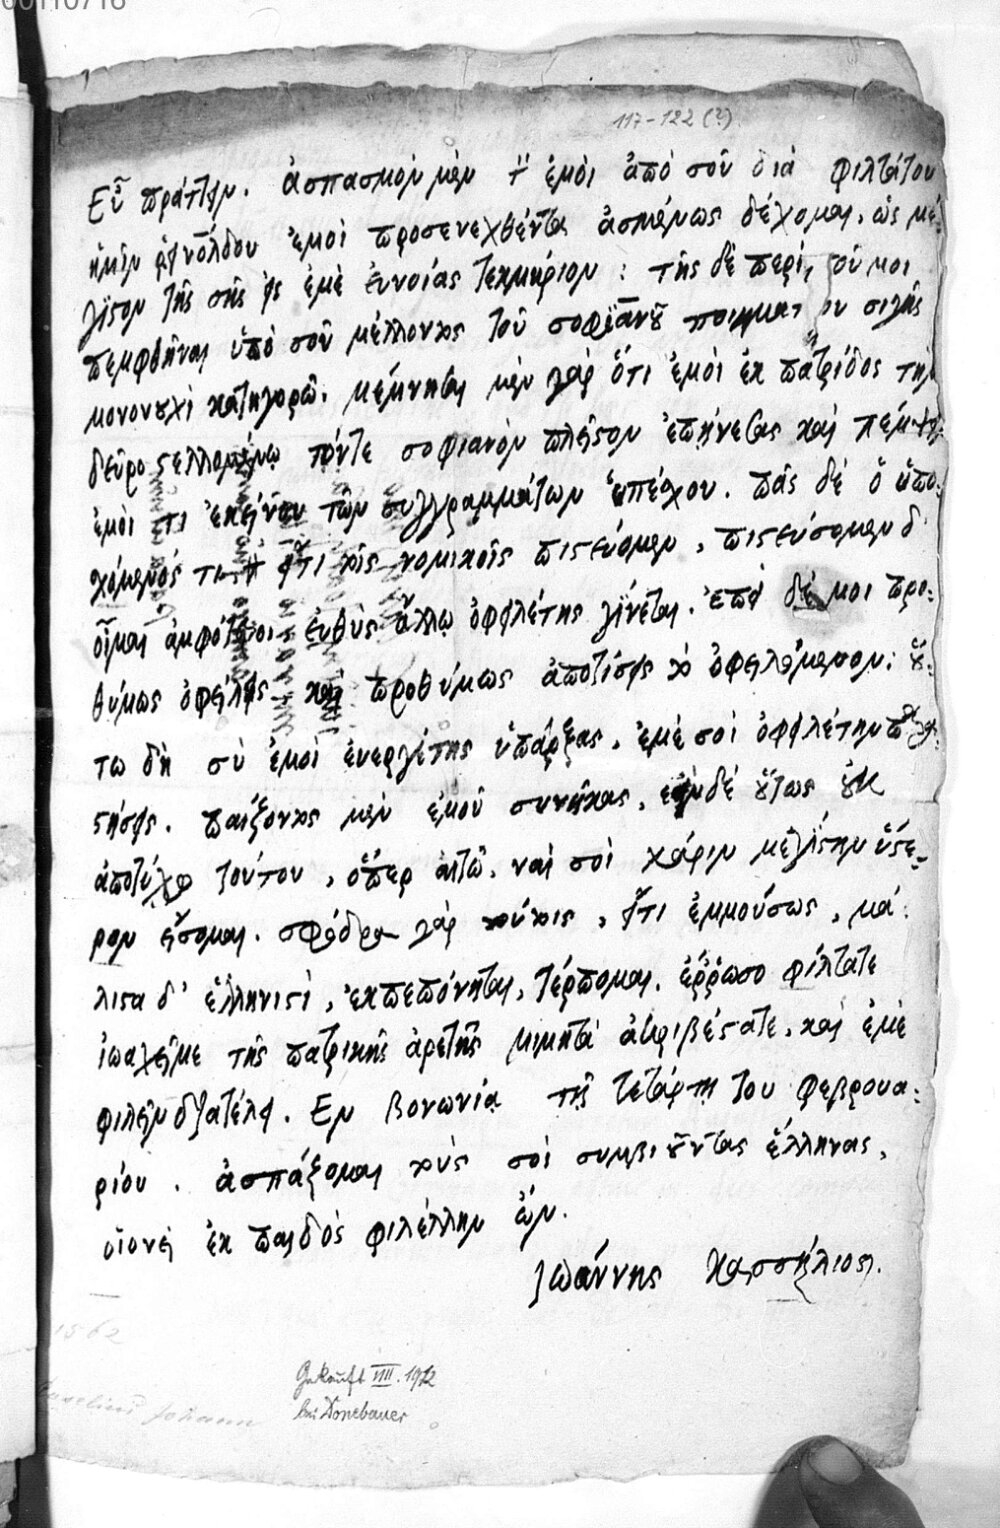 00110716
117-122 (?)
Εὖ πράττειν. ἀσπασμὸν μὲν ἐμοὶ ἀπὸ σοῦ διὰ φιλτάτου
ἡμῖν ἐμοὶ προσενεχθέντα ἀσμένως δέχομαι, ὡς μέ-
γιστον τῆς σῆς εἰς ἐμὲ εὐνοίας τεκμήριον: τῆς δὲ περὶ τοῦ μοι
πεμφθῆναι ὑπὸ σοῦ μέλλοντος τοῦ σοφιανοῦ σιγῆς
μονονουχὶ κατηγορῶ. μέμνησαι μὲν γὰρ ὅτι ἐμοὶ ἐκ πατρίδος τὴν
δεῦρο στελλομένῳ σοφιανὸν πλεῖστον ἐπῄνεσας καὶ πέμψειν
ἐμοί τι ἐκείνου τῶν συγγραμμάτων ὑπέσχου. πᾶς δὲ ὁ ὑπο-
χόμενός τι εἴ τι τοῖς νομικοῖς πιστεύομεν, πιστεύσομεν δ'
οἶμαι ἀμφότεροι εὐθὺς ἄλλῳ ὀφειλέτης γίνεται. ἐπεὶ δέ μοι προ-
θύμως ὀφείλεις καὶ προθύμως ἀποτίσεις τὸ ὀφειλόμενον: οὕ-
τω δὴ σὺ ἐμοὶ εὐεργέτης ὑπάρξας, ἐμέ σοι ὀφειλέτην
στήσεις. παίξοντος μὲν ἐμοῦ συνῆκας, ἐὰν δὲ οὕτως οὐκ
ἀποτύχω τούτου, ὅπερ αἰτῶ, καὶ σοὶ χάριν μεγίστην ὕστε-
ρον εἴσομαι. σφόδρα γὰρ τούτοις, εἴ τι ἐμμούσως, μά-
λιστα δ' ἑλληνιστὶ, ἐκπεπόνηται, τέρπομαι. ἔῤῥωσο φίλτατε
ἰωαχεῖμε τῆς πατρικῆς ἀρετῆς μιμητὰ ἀκριβέστατε, καὶ ἐμὲ
φιλεῖν διατέλει. Ἐν βονωνίᾳ τῇ τετάρτῃ τοῦ φεβρουα-
ρίου. ἀσπάζομαι τοὺς σοὶ συμβιοῦντας ἕλληνας,
οἱονεὶ ἐκ παιδὸς φιλέλλην ὤν.
Ἰωάννης Κασσήλιος.
1562
Caselius Johann
Gekauft IIII. 1912
bei Donebauer